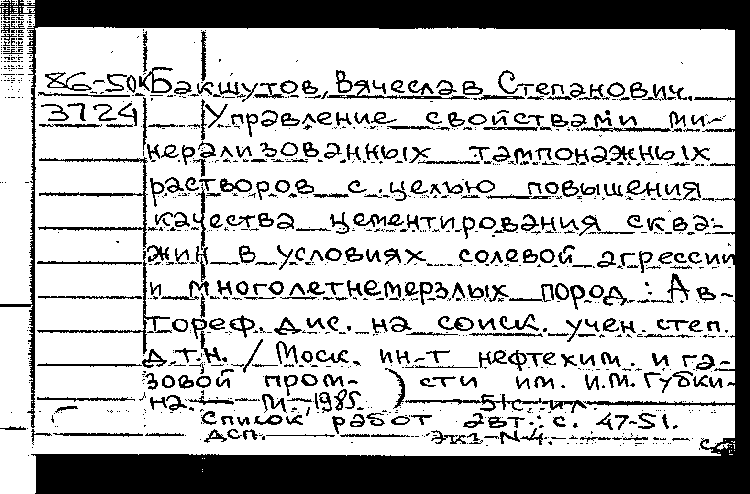 86-50к Бакшутов, Вячеслав Степанович.
3724 Управление свойствами ми-
нерализованных тампонажных
растворов с целью повышения
качества цементирования сква-
жин в условиях солевой агрессии
и многолетнемерзлых пород : Ав-
тореф. дис. на соиск. учен. степ.
д.т.н. / Моск. ин-т нефтехим. и га-
зовой пром-сти им. И.М. Губки-
на. — М., 1985. 51с. ил.
Список работ авт.: с. 47-51.
ДСП. Экз. N 4.